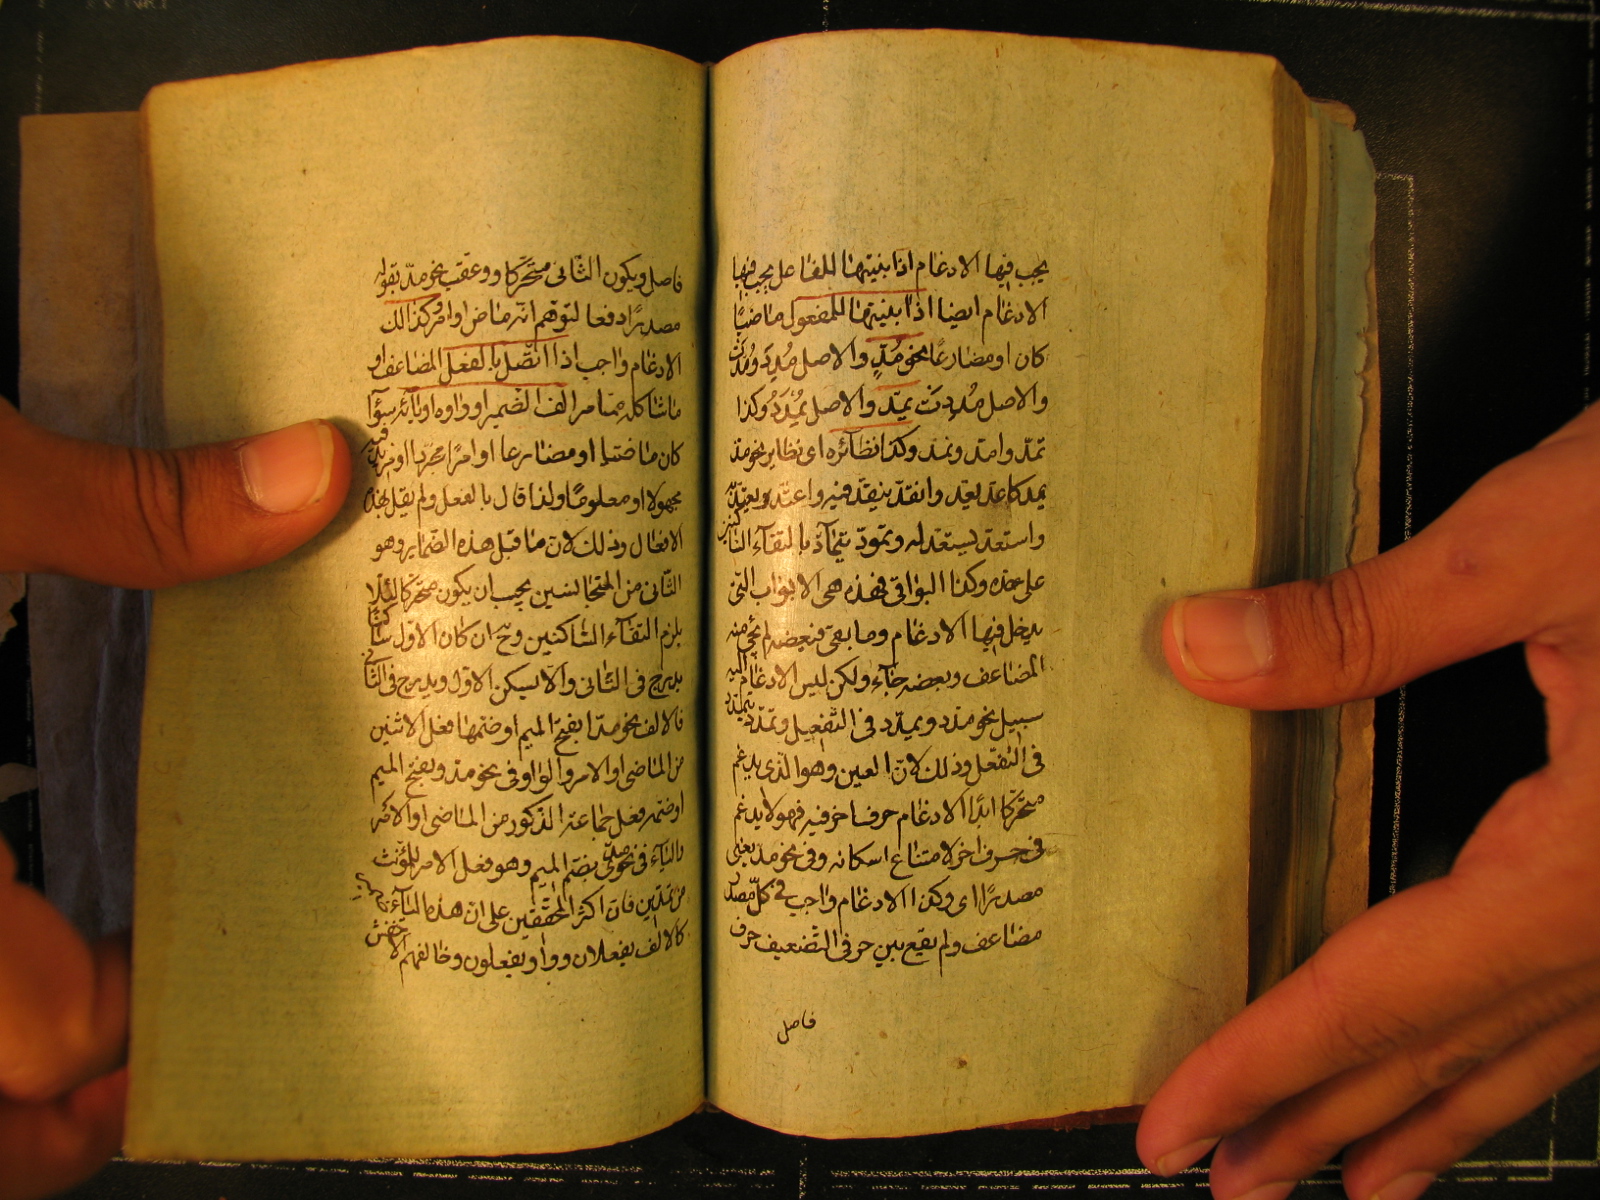 يجب فيها الادغام اذا بنيتها للفاعل يجب فيها
الادغام ايضا اذا بنيتها للمفعول ماضيًا
كان او مضارعًا نحو مُدّ والاصل مُدِدَ ومُدَّتْ
والاصل مُدِدَتْ يُمَدّ والاصل يُمْدَدُ وكذا
تمدّ وامدّ ونمدّ وكذا نظآئره اى نظاير نحو مدّ
يمدّ كاعدّ يعدّ وانقدّ ينقدّ فيه واعتدّ ويعتدّ به
واستعدّ يستعدّ له وتمودّ يتمآدّ بالتقآء الساكنين
على حدّه وكذا البواقى فهذه هى الابواب التى
يدخل فيها الادغام وما بقى فبعضه لم يجئ منه
المضاعف وبعضه جآء ولكن ليس الادغام اليه
سبيل نحو مدّد ويمدّد فى التفعيل وتمدّد يتمدّد
فى التفعّل وذلك لانّ العين وهو الذى يدغم
متحرّكا ابدًا الادغام حرف اخر فيه فهو لا يدغم
فى حرف اخر لامتناع اسكانه وفى نحو مدّ يعنى
مصدرًا اى وكذا الادغام واجب فى كلّ مصدر
مضاعف ولم يقع بين حرفى التضعيف حرف
فاصل
فاصل ويكون الثانى متحرّكا ووعقب نحو مدّ بقوله
مصدرًا دفعا لتوهم انّه ماض او امر وكذالك
الادغام واجب اذا اتّصل بالفعل المضاعف او
ما شاكله ممّا مر الف الضمير او واوه او يآئه سوآء
كان ماضيا او مضارعا او امرًا مجرّدا او مزيد فيه
مجهولا او معلومًا ولذا قال بالفعل ولم يقل بهذه
الافعال وذلك لانّ ما قبل هذه الضماير وهو
الثّانى من المتجانسين يجب ان يكون متحرّكا لئلّا
يلزم التقآء السّاكنين وح ان كان الاوّل ساكنا
يدرج فى الثّانى والّا يسكن الاوّل ويدرج فى الثانى
فالالف نحو مدّا بفتح الميم او ضمّها فعل الاثنين
من الماضى او الامر والواو فى نحو مدّو بفتح الميم
او ضمّه فعل جماعة الذكور من الماضى او الامر
واليآء فى نحو مدّى بضمّ الميم وهو فعل الامر للمؤنث
من تمدّين فانّ اكثر المحقّقين على انّ هذه اليآء
كالالف يفعلان وواو يفعلون وخالفهم الاخفش